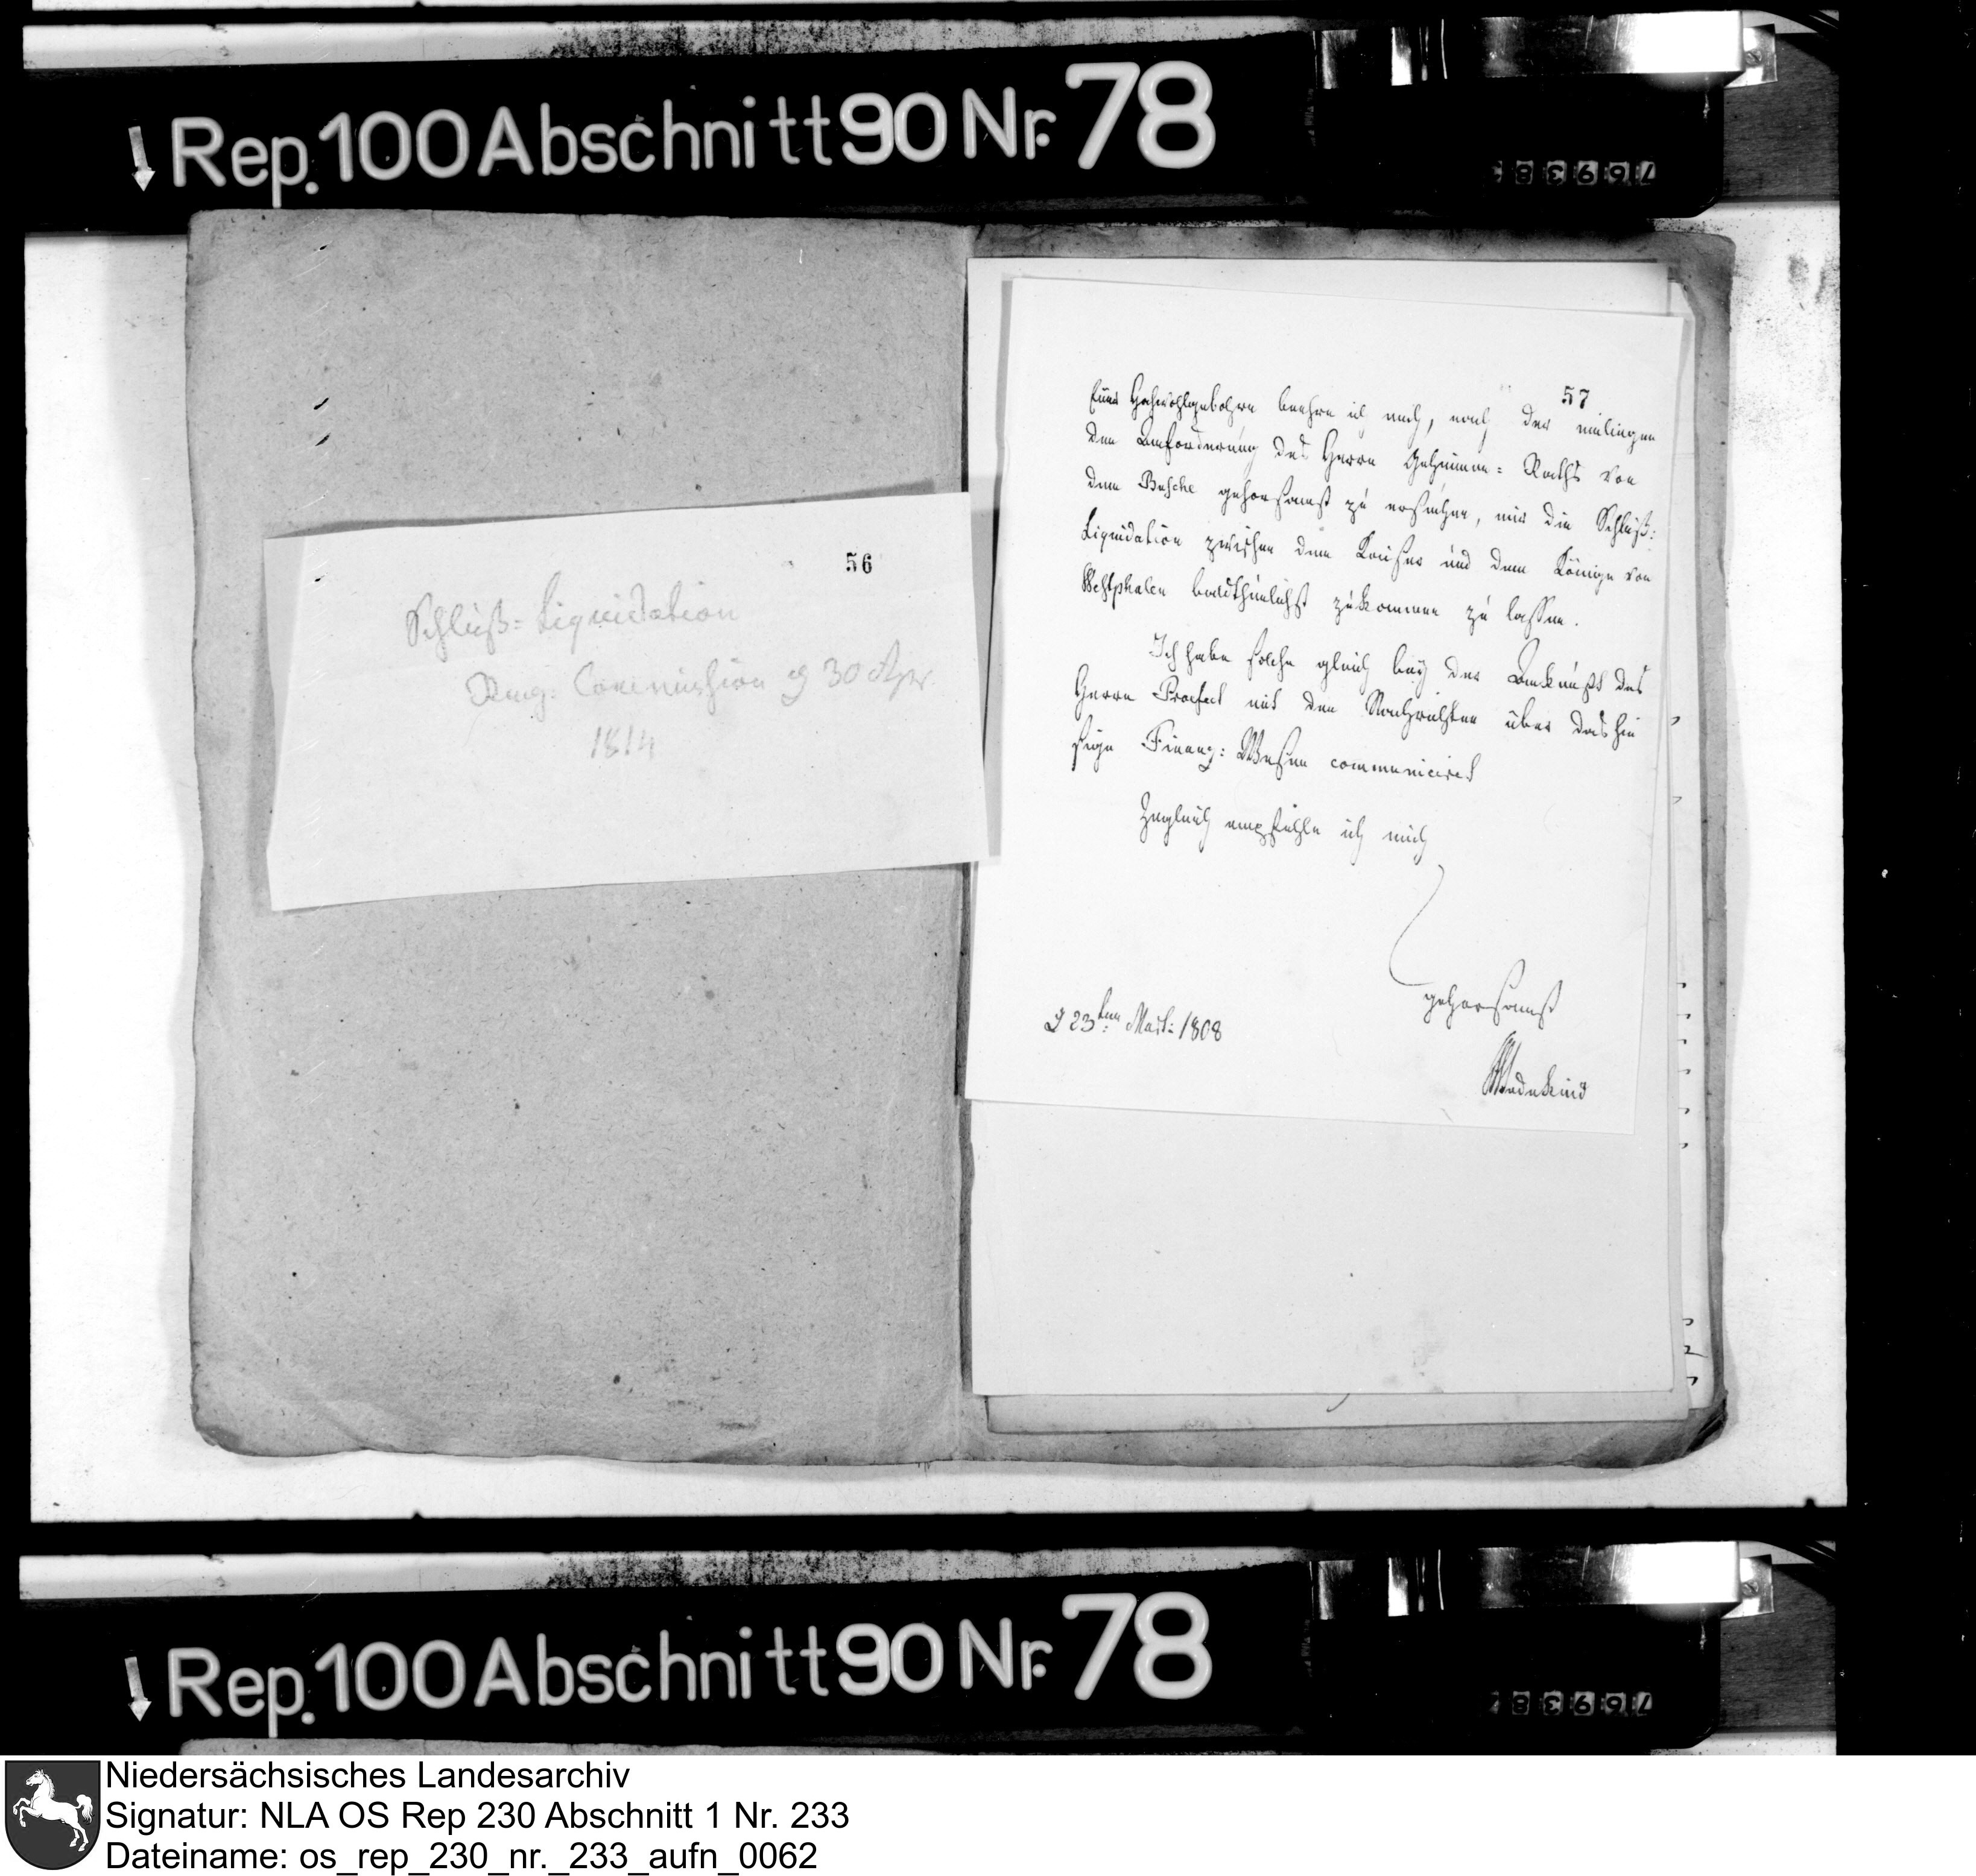 Rep. 100 Abschnitt 90 Nr. 78
769385
56
Schluß-Liquidation
Reg: Commission d 30 Apr.
1814
57
Euer Hochwohlgebohren beehre ich mich, nach der
den Anforderung des Herrn Geheimen-Raths von
dem Bussche gehorsamst zu ersuchen, mir die Schluß-
Liquidation zwischen dem Kaiser und dem Könige von
Westphalen baldthunlichst zukommen zu lassen.
Ich habe solche gleich bey der Ankunft des
Herrn Praefect mit den Nachrichten über das hie
sige Finanz-Wesen communicirt
Zugleich empfehle ich mich
gehorsamst
d 23ten Mart: 1808
Wedekind
Rep. 100 Abschnitt 90 Nr. 78
Niedersächsisches Landesarchiv
Signatur: NLA OS Rep 230 Abschnitt 1 Nr. 233
Dateiname: os_rep_230_nr._233_aufn_0062